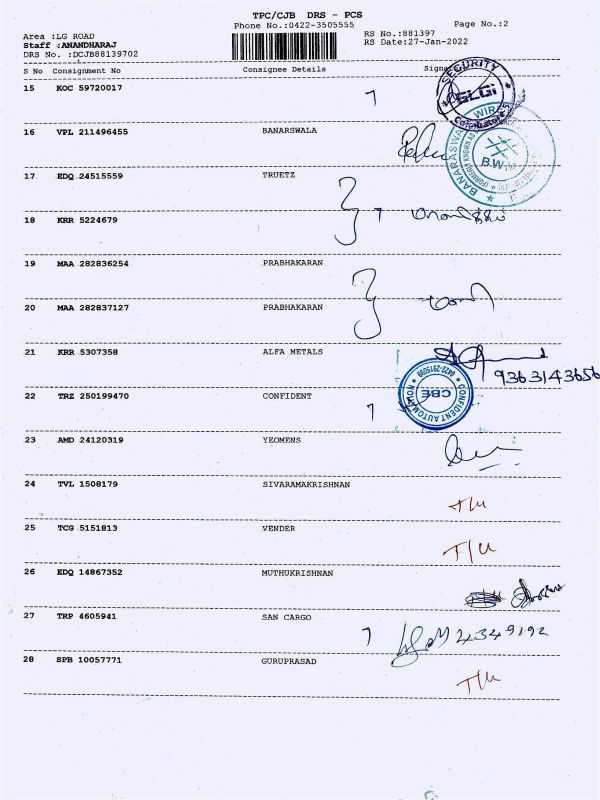 TPC/CJB DRS - PCS
Phone No.:0422-3505555
Page No.:2
Area :LG ROAD
RS No.:881397
Staff :ANANDHARAJ
RS Date:27-Jan-2022
DRS No. :DCJB88139702
S No Consignment No Consignee Details Signa
15 KOC 59720017
SECURITY
GLGi
Coimbatore
16 VPL 211496455 BANARSWALA
WIR
BANARASWA
B.W.
17 EDQ 24515559 TRUETZ
18 KRR 5224679
19 MAA 282836254 PRABHAKARAN
20 MAA 282837127 PRABHAKARAN
21 KRR 5307358 ALFA METALS
9363143656
22 TRZ 250199470 CONFIDENT
CONFIDENT AUTOMATION
CBE
23 AMD 24120319 YEOMENS
24 TVL 1508179 SIVARAMAKRISHNAN
T/U
25 TCG 5151813 VENDER
T/U
26 EDQ 14867352 MUTHUKRISHNAN
27 TRP 4605941 SAN CARGO
28 SPB 10057771 GURUPRASAD
T/U